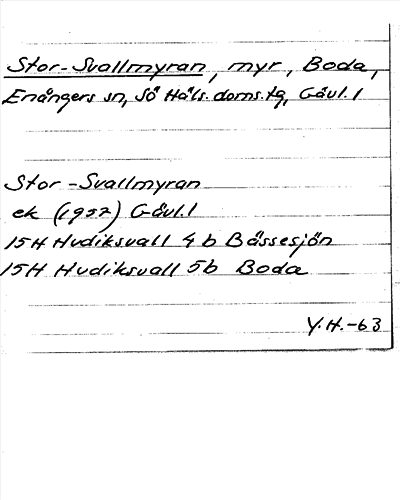 Stor-Svallmyran, myr, Boda,
Enångers sn, Sö Häls. doms.tg, Gävl. l
Stor-Svallmyran
ek (1952) Gävl. l
15H Hudiksvall 4 b Bössesjön
15H Hudiksvall 5b Boda
Y.H.-63